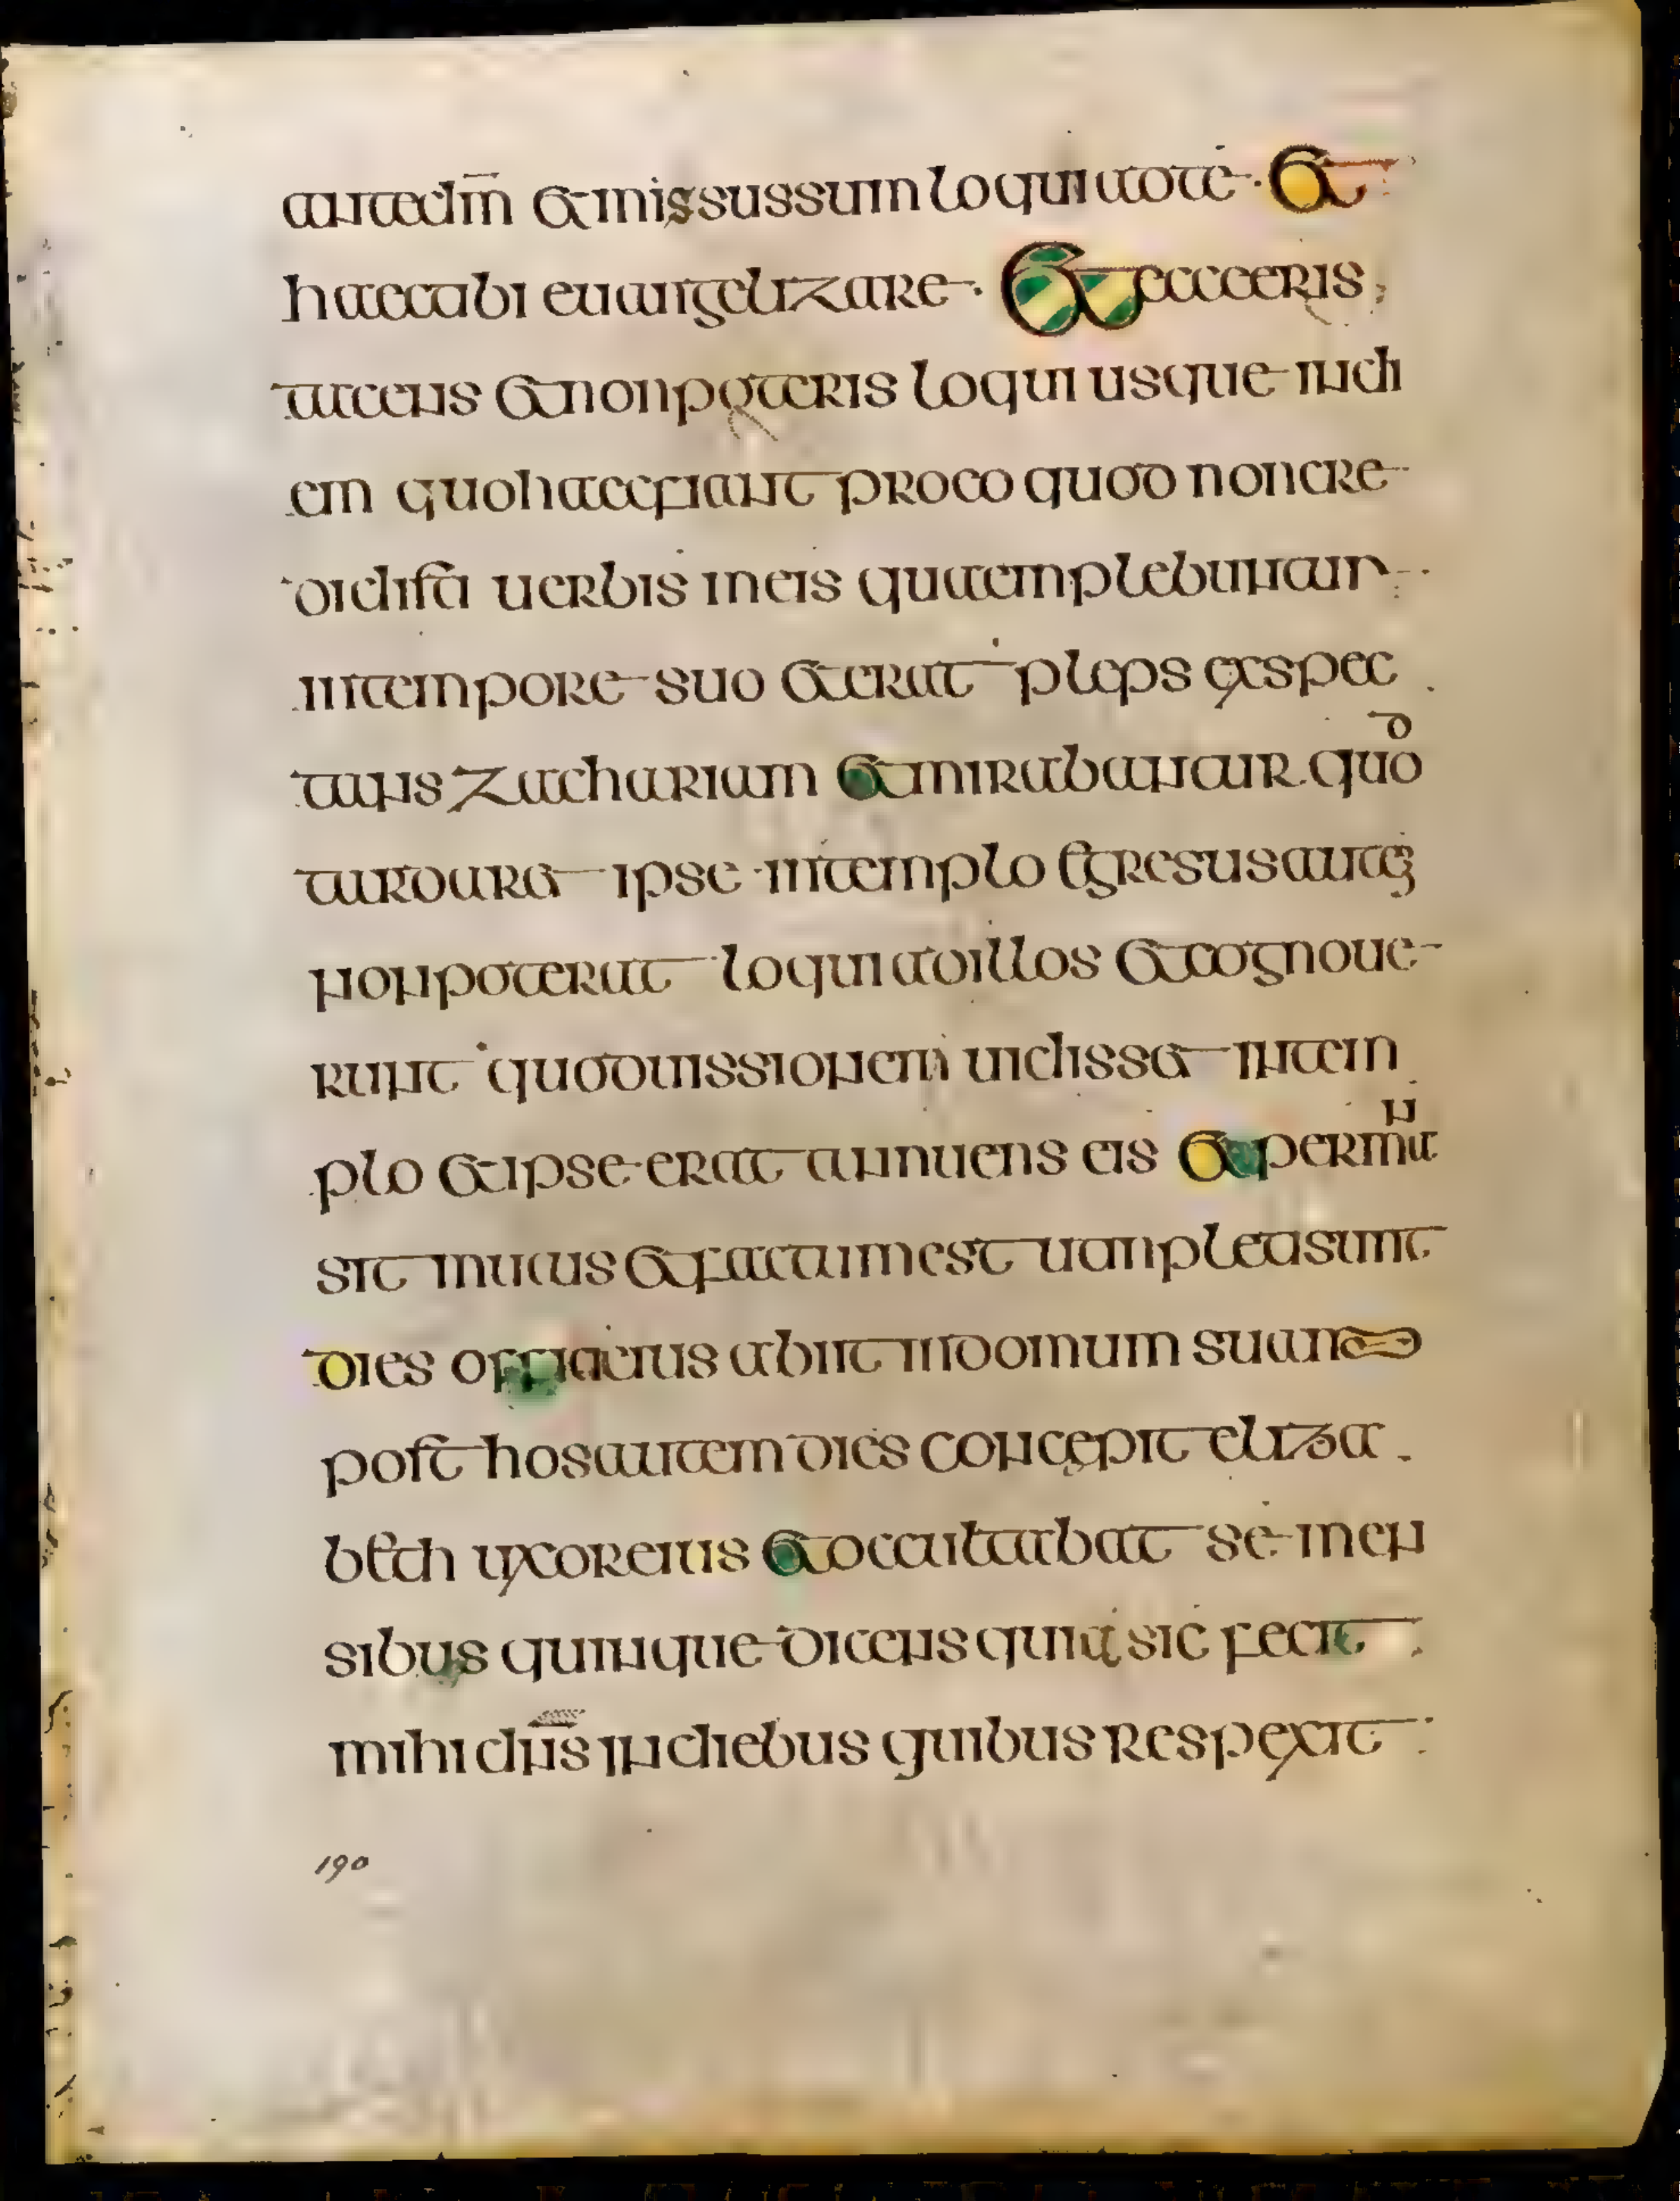 antedm̄ et missus sum loqui ad te · et
haec tibi euangelizare · et ecce eris
tacens et non poteris loqui usque in di
em quo haec fiant pro eo quod non cre
didisti uerbis meis quae inplebuntur
in tempore suo et erat pleps exspec
tans zachariam et mirabantur quod
tardaret ipse in templo egresus autem
non poterat loqui ad illos et cognoue
runt quod uissionem uidisset in tem
plo et ipse erat annuens eis et perman
sit mutus et factum est ut inpleti sunt
dies officii eius abiit in domum suam
post hos autem dies concepit eliza
beth uxor eius et occultabat se men
sibus quinque dicens quia sic fecit
mihi dn̄s in diebus quibus respexit
190